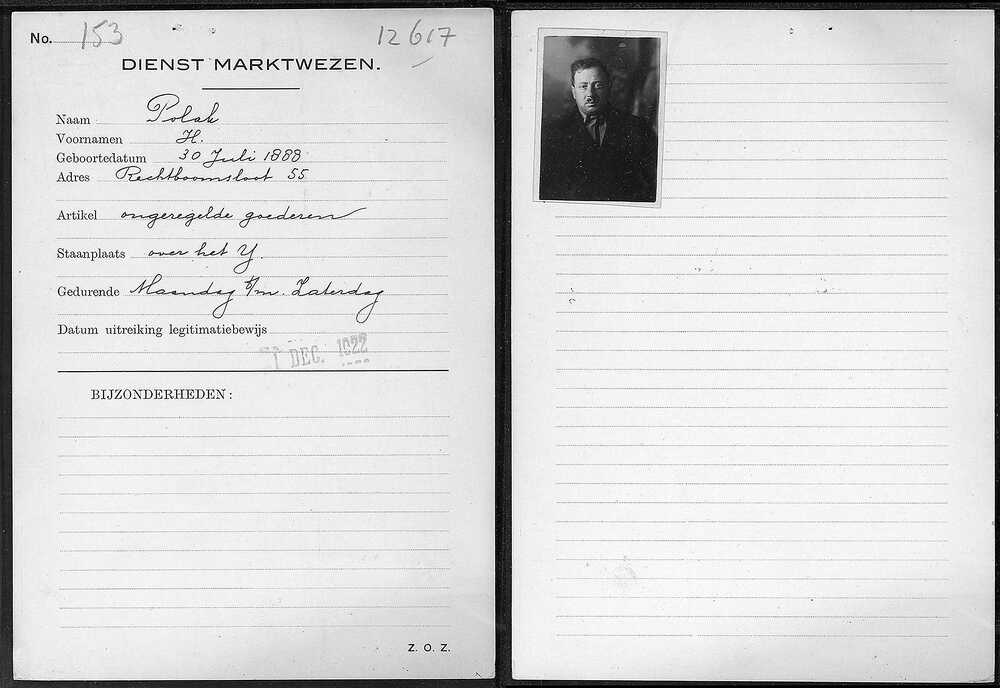 No. 153 12617
DIENST MARKTWEZEN.
Naam Polak
Voornamen H.
Geboortedatum 30 Juli 1888
Adres Rechtboomsloot 55
Artikel ongeregelde goederen
Staanplaats over het Y.
Gedurende Maandag t/m. Zaterdag
Datum uitreiking legitimatiebewijs
DEC. 1922
BIJZONDERHEDEN:
Z. O. Z.